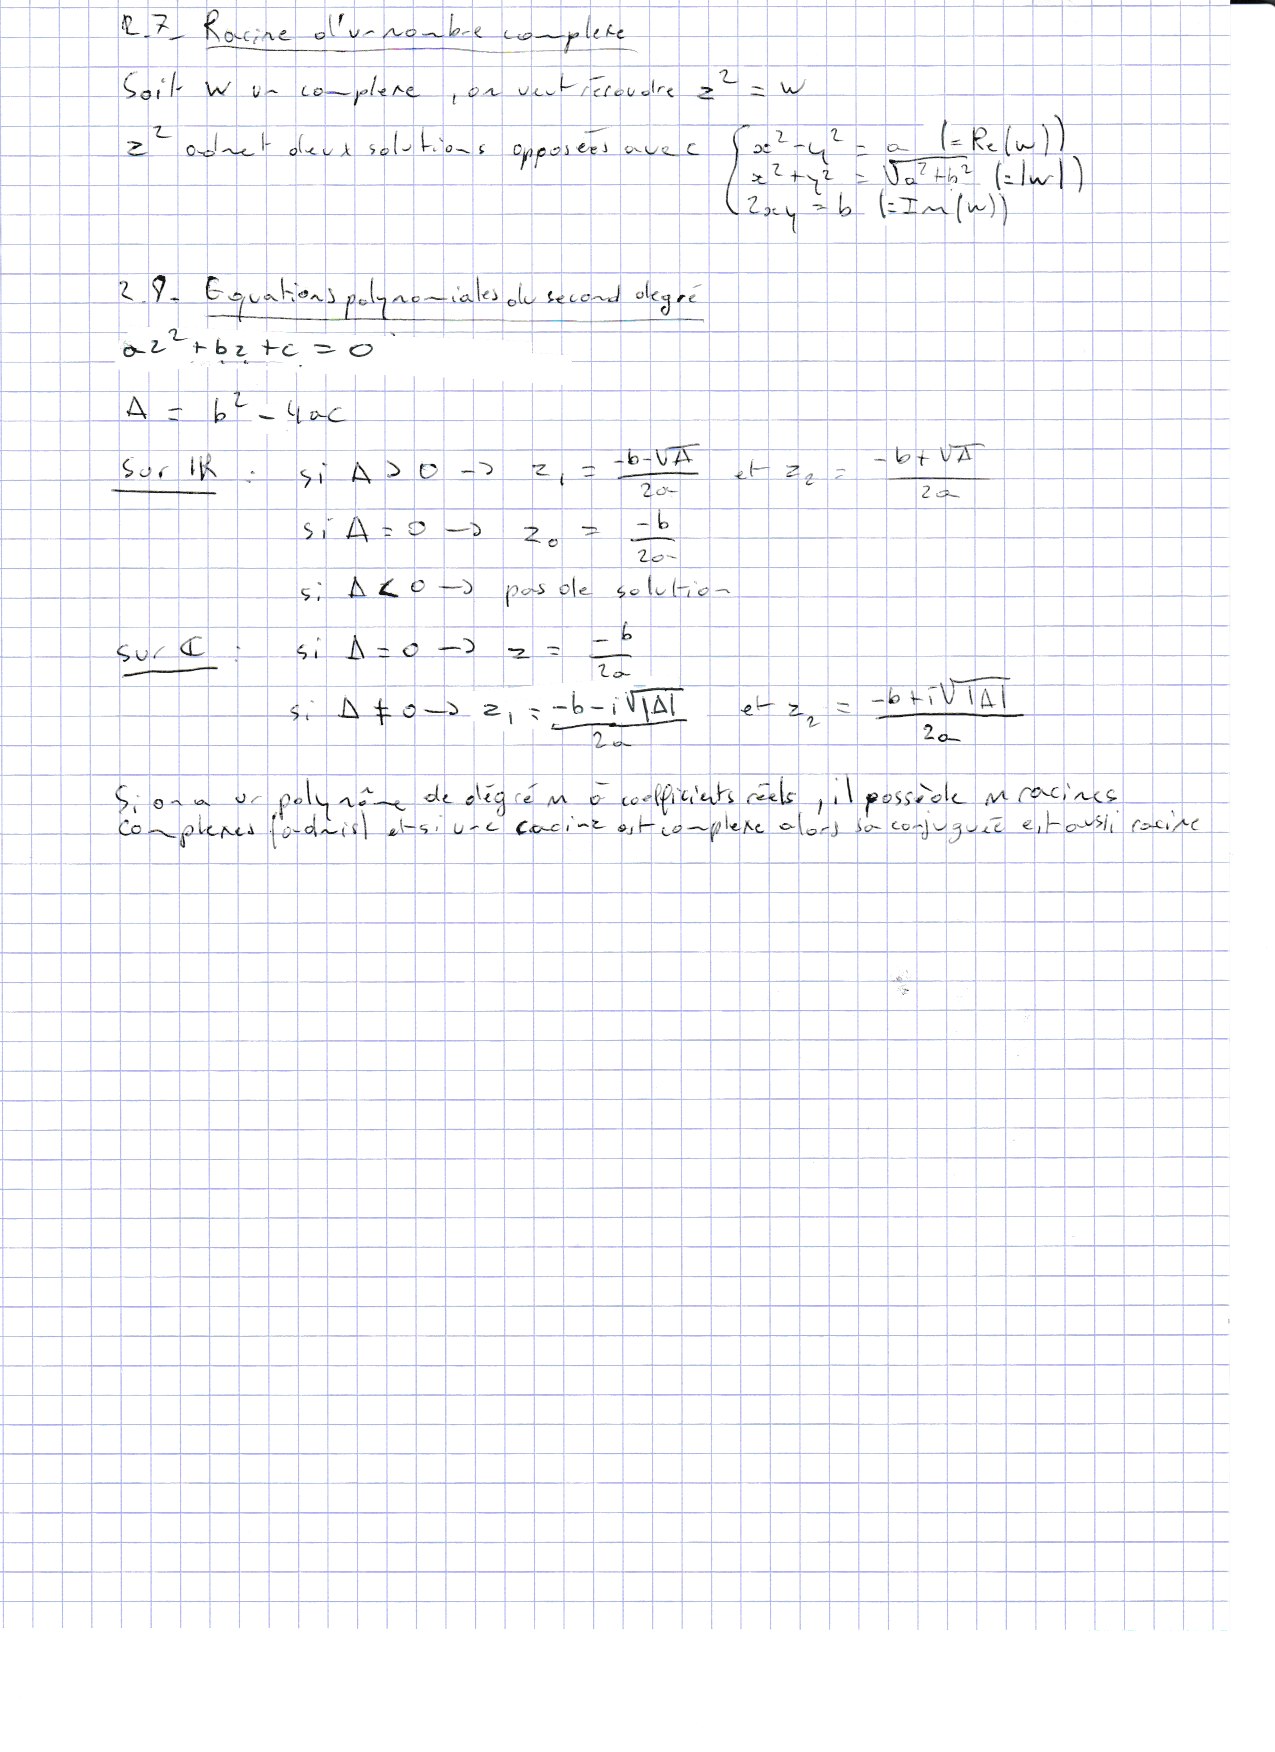 2.7- Racine d'un nombre complexe
Soit w un complexe, on veut résoudre z² = w
z² admet deux solutions opposées avec { x² - y² = a (= Re(w))
x² + y² = √(a²+b²) (= |w|)
2xy = b (= Im(w))
2.8- Equations polynomiales du second degré
az² + bz + c = 0
Δ = b² - 4ac
Sur ℝ : si Δ > 0 → z₁ = (-b-√Δ)/2a et z₂ = (-b+√Δ)/2a
si Δ = 0 → z₀ = -b/2a
si Δ < 0 → pas de solution
sur ℂ : si Δ = 0 → z = -b/2a
si Δ ≠ 0 → z₁ = (-b-i√|Δ|)/2a et z₂ = (-b+i√|Δ|)/2a
Si on a un polynôme de dégré n à coefficients réels, il possède n racines
complexes (admis) et si une racine est complexe alors sa conjuguée est aussi racine